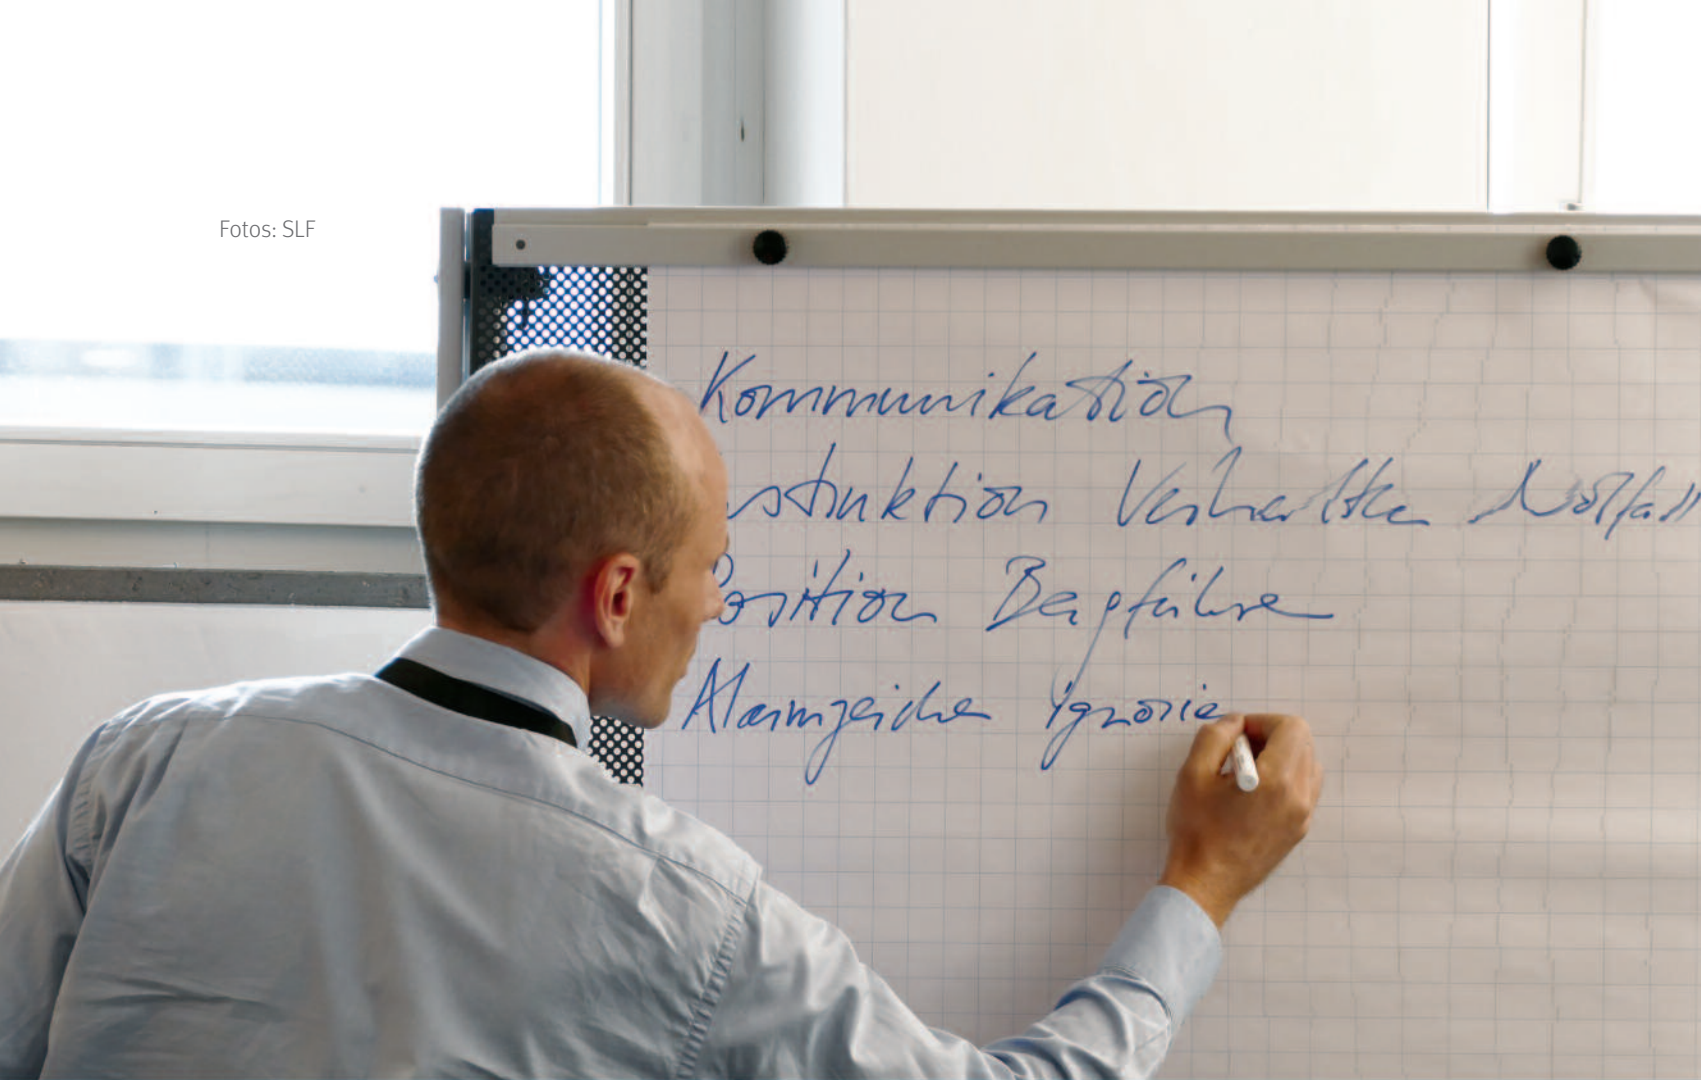 Fotos: SLF
Kommunikation
nstruktion Verhalten Notfall
Position Bergführer
Alarmzeichen ignorie